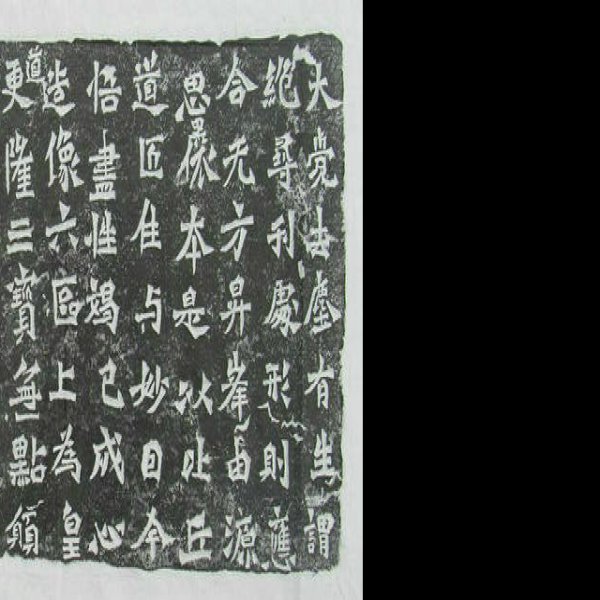 大覺去塵有生謂
絕尋利處形則應
合无方昇峯由源
思本是以止丘
道匠住与妙日今
悟盡性竭已成心
造像六區上為皇
道
更隆三寶無點願